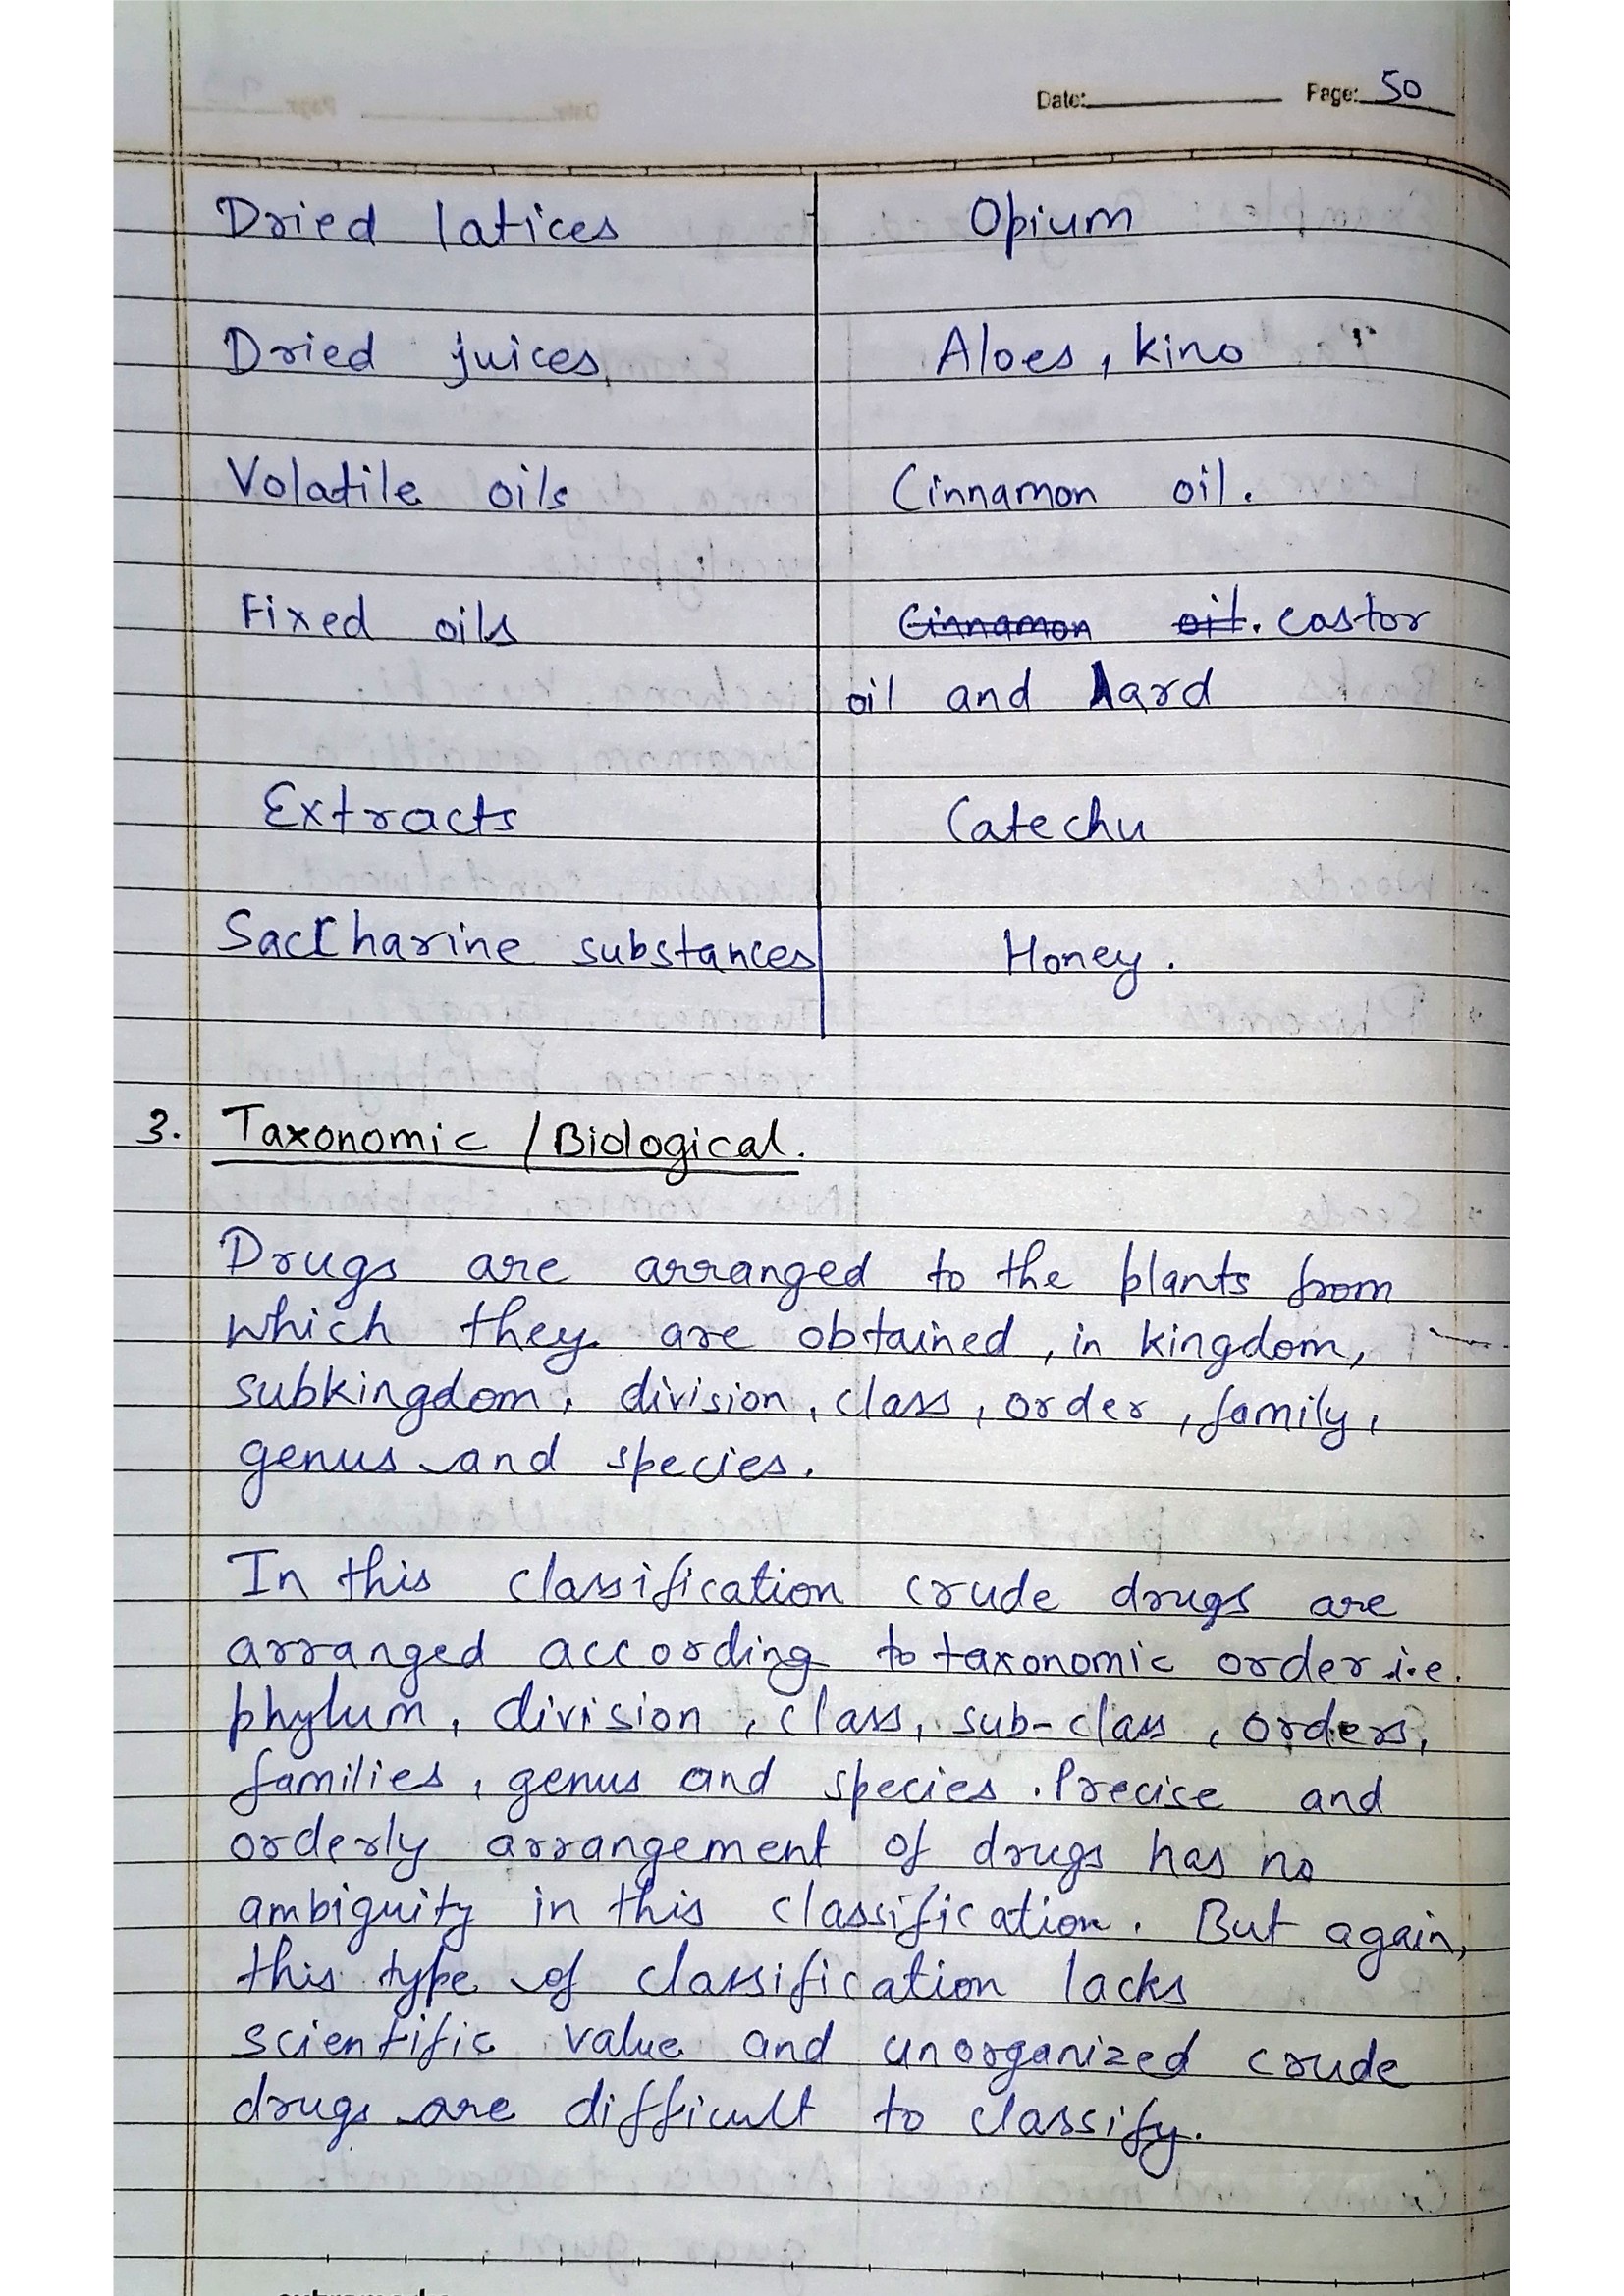 Date: Page: 50
Dried latices Opium
Dried juices, Aloes, kino
Volatile oils Cinnamon oil.
Fixed oils Cinnamon oil. castor
oil and lard
Extracts Catechu
Saccharine substances Honey.
3. Taxonomic / Biological.
Drugs are arranged to the plants from
which they are obtained, in kingdom,
subkingdom, division, class, order, family,
genus and species.
In this classification crude drugs are
arranged according to taxonomic order i.e.
phylum, division, class, sub-class, orders,
families, genus and species. Precise and
orderly arrangement of drugs has no
ambiguity in this classification. But again,
this type of classification lacks
scientific value and unorganized crude
drugs are difficult to classify.